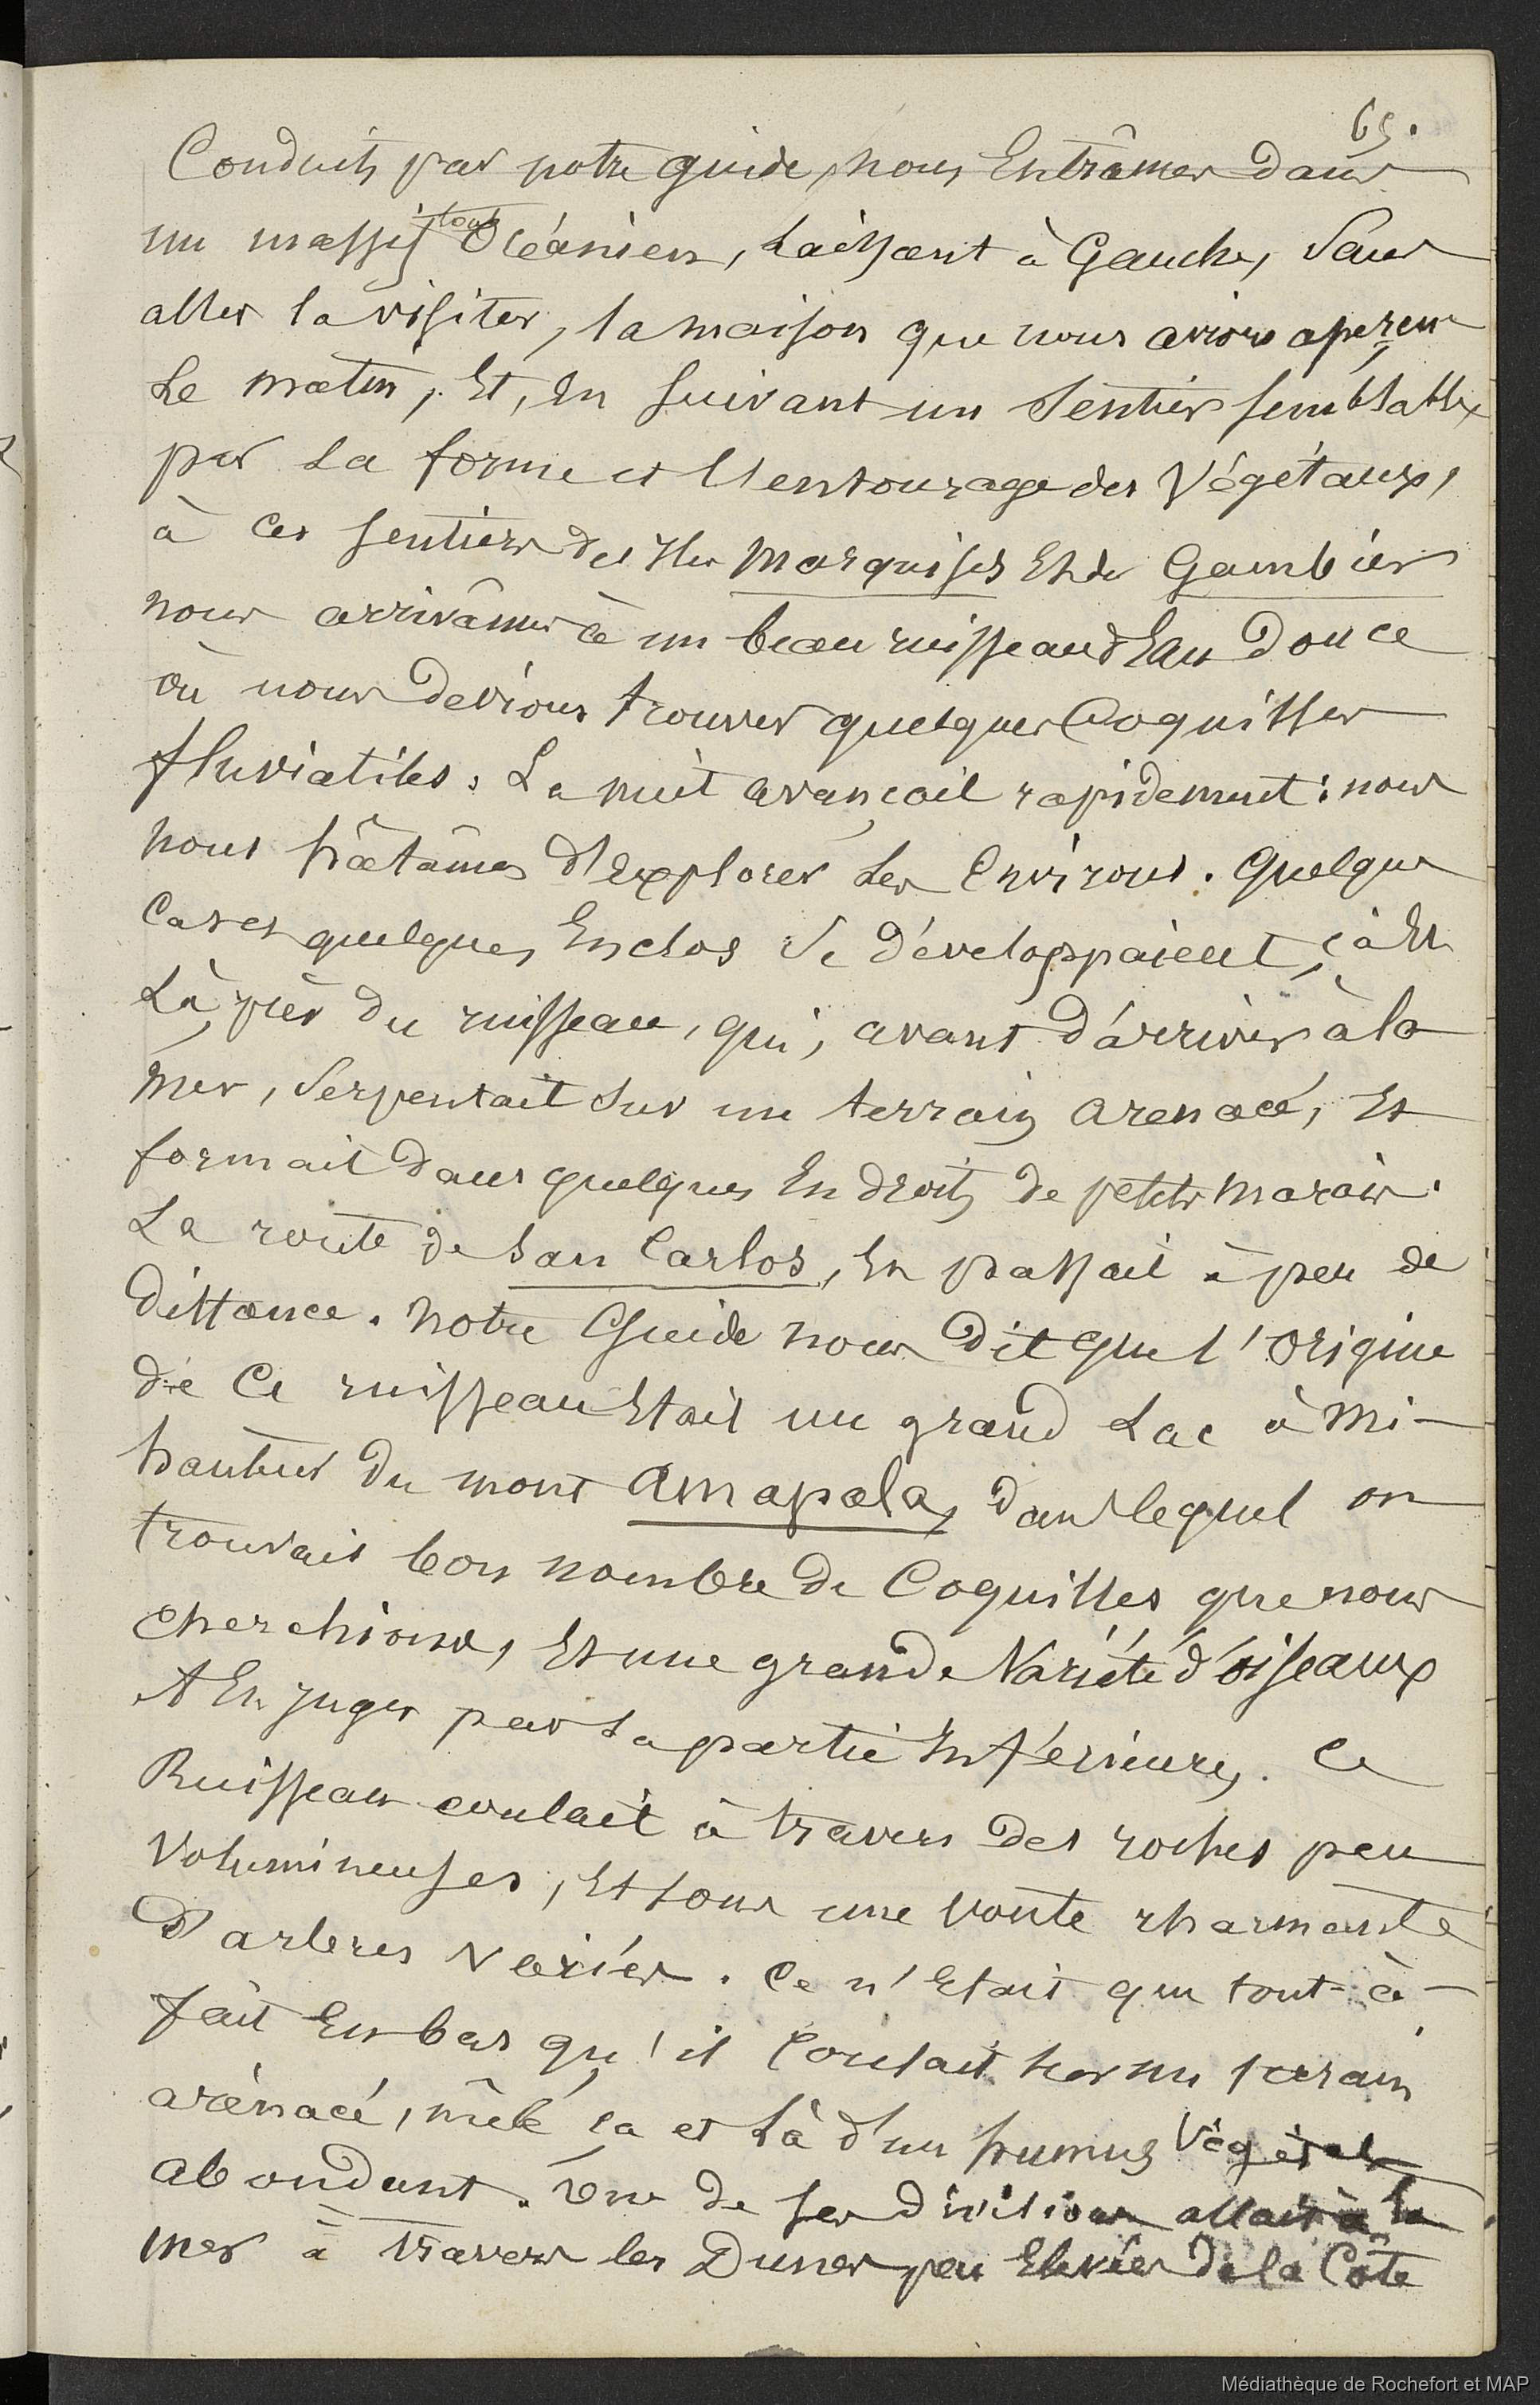 65.
Conduits par notre guide, nous Entrâmes dans
un massif tout Océanien, Laissant à Gauche, sans
aller la visiter, la maison que nous avions aperçu
Le matin, Et, En suivant un Sentier semblable
par La forme et l'entourage des Végétaux,
à ces sentiers des Iles Marquises Et de Gambier
nous arrivâmes à un beau ruisseau d'Eau Douce
où nous Devions trouver quelques Coquilles
fluviatiles. La nuit avançait rapidement: nous
nous hâtâmes d'Explorer Les Environs. Quelques
Cases quelques Enclos Se Développaient, çà Et
Là, près du ruisseau, qui, avant d'arriver à la
Mer, Serpentait Sur un terrain arenacé, Et
formait Dans quelques Endroits De petits Marais.
La route de San Carlos, En passait à peu de
Distance. Notre Guide nous Dit que l'origine
de Ce ruisseau Etait un grand Lac à Mi-
hauteur Du mont Amapala, Dans lequel on
trouvait bon nombre De Coquilles que nous
Cherchions, Et une grande Variété d'oiseaux
A En juger par La partie Inférieure, Ce
Ruisseau coulait à travers Des roches peu
Volumineuses, Et sous une voute charmante
D'arbres Variés. Ce n'Etait que tout-à-
fait En bas qu'il Coulait sur un terrain
arénacé, mêlé ça et Là d'un humus Végétal
abondant. Une de ses divisions allait à la
mer à travers les Dunes peu Elevées de la Côte
Médiathèque de Rochefort et MAP